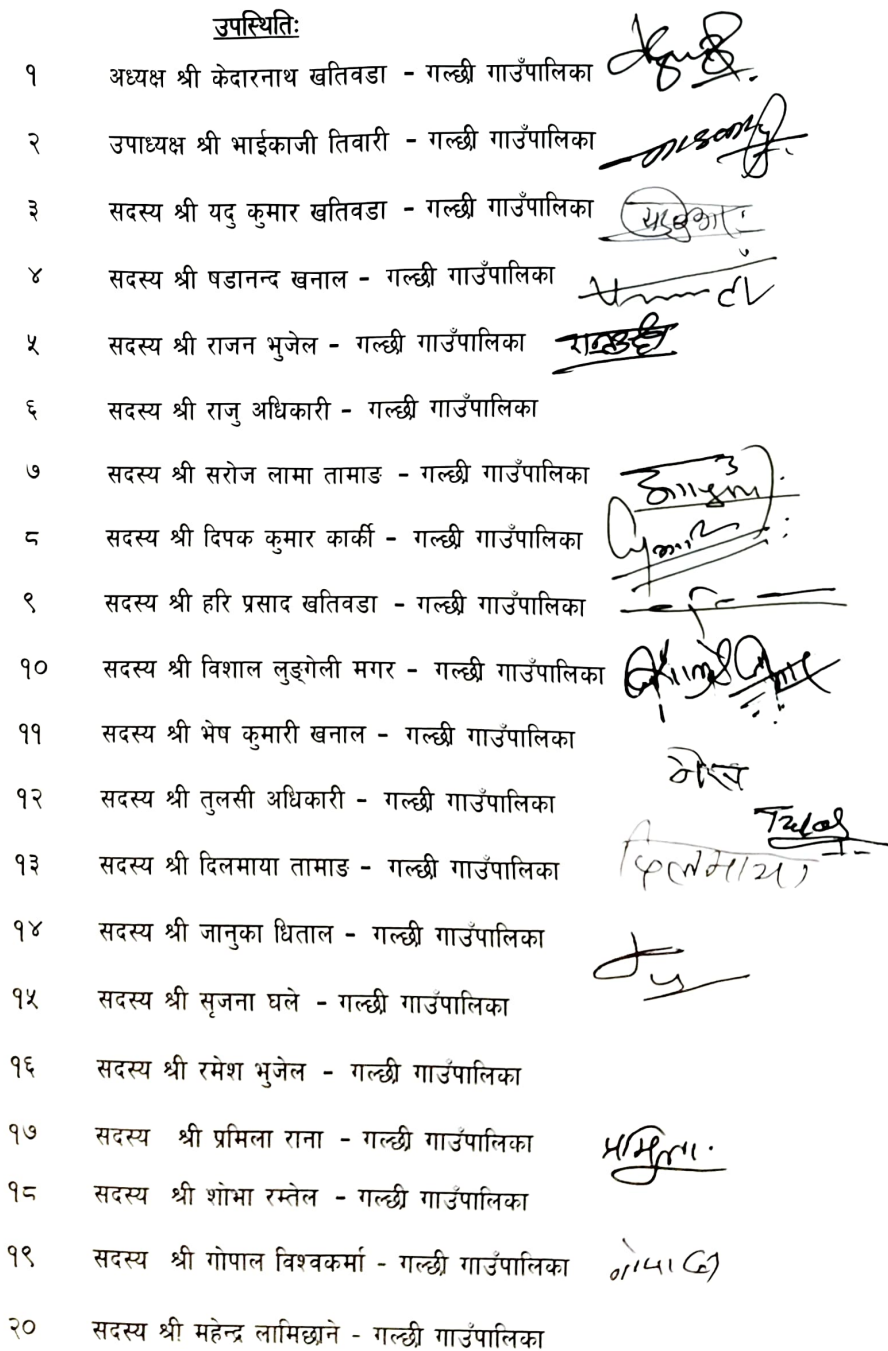 उपस्थितिः
१ अध्यक्ष श्री केदारनाथ खतिवडा - गल्छी गाउँपालिका
२ उपाध्यक्ष श्री भाईकाजी तिवारी - गल्छी गाउँपालिका
३ सदस्य श्री यदु कुमार खतिवडा - गल्छी गाउँपालिका
४ सदस्य श्री षडानन्द खनाल - गल्छी गाउँपालिका
५ सदस्य श्री राजन भुजेल - गल्छी गाउँपालिका
६ सदस्य श्री राजु अधिकारी - गल्छी गाउँपालिका
७ सदस्य श्री सरोज लामा तामाङ - गल्छी गाउँपालिका
८ सदस्य श्री दिपक कुमार कार्की - गल्छी गाउँपालिका
९ सदस्य श्री हरि प्रसाद खतिवडा - गल्छी गाउँपालिका
१० सदस्य श्री विशाल लुङ्गेली मगर - गल्छी गाउँपालिका
११ सदस्य श्री भेष कुमारी खनाल - गल्छी गाउँपालिका
१२ सदस्य श्री तुलसी अधिकारी - गल्छी गाउँपालिका
१३ सदस्य श्री दिलमाया तामाङ - गल्छी गाउँपालिका दिलमाया
१४ सदस्य श्री जानुका धिताल - गल्छी गाउँपालिका
१५ सदस्य श्री सृजना घले - गल्छी गाउँपालिका
१६ सदस्य श्री रमेश भुजेल - गल्छी गाउँपालिका
१७ सदस्य श्री प्रमिला राना - गल्छी गाउँपालिका प्रमिला
१८ सदस्य श्री शोभा रम्तेल - गल्छी गाउँपालिका
१९ सदस्य श्री गोपाल विश्वकर्मा - गल्छी गाउँपालिका गोपाल
२० सदस्य श्री महेन्द्र लामिछाने - गल्छी गाउँपालिका